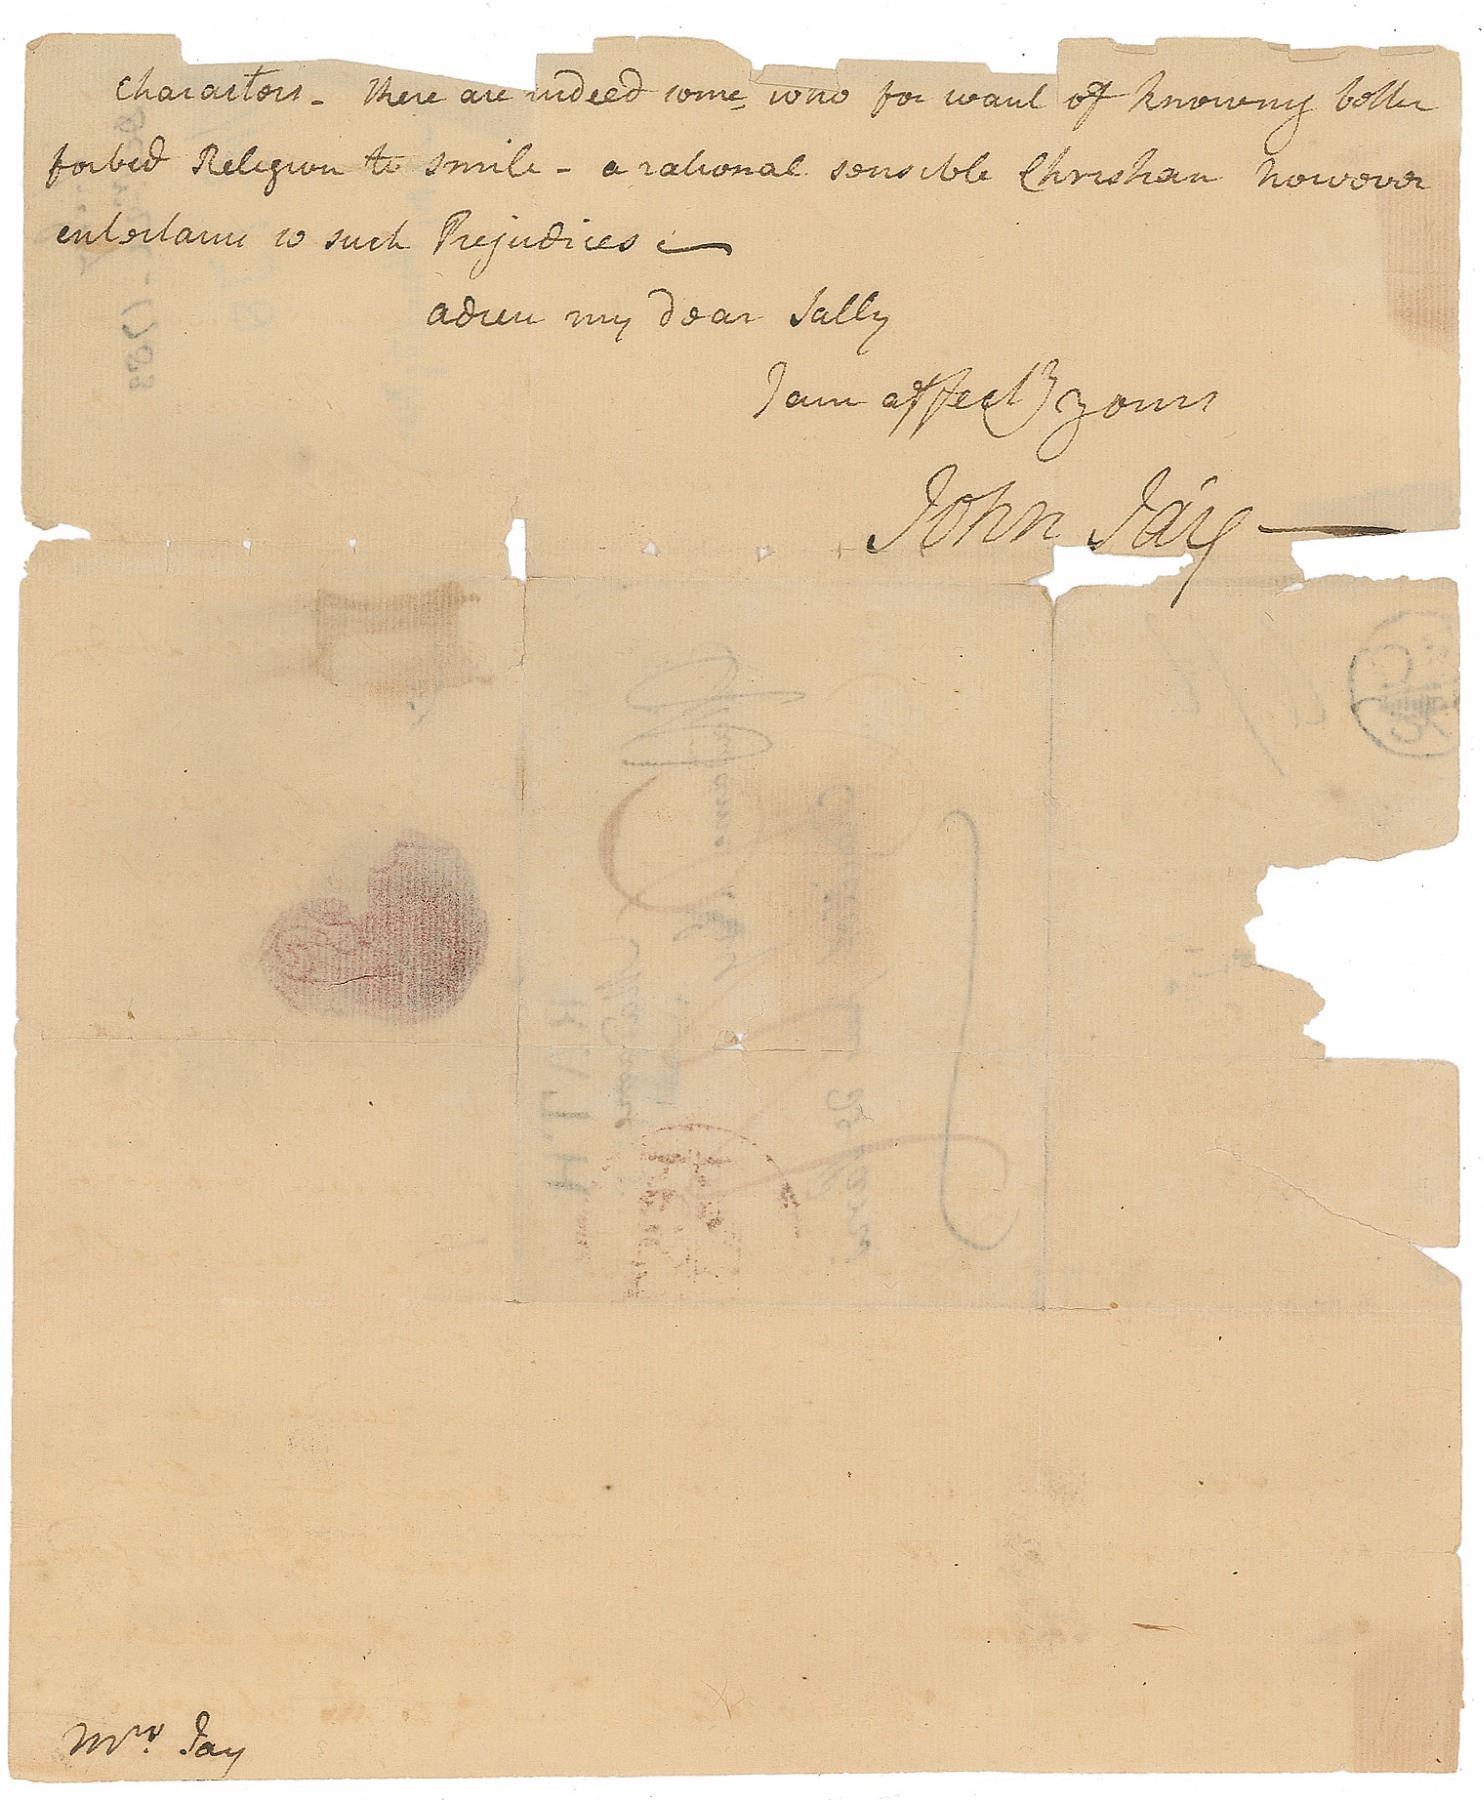 Characters - There are indeed some who for want of knowing better
forbid Religion to smile - a rational sensible Christian however
entertains no such Prejudices -
adieu my dear Sally
I am affecty yours
John Jay
Mrs. Jay
1783
BATH